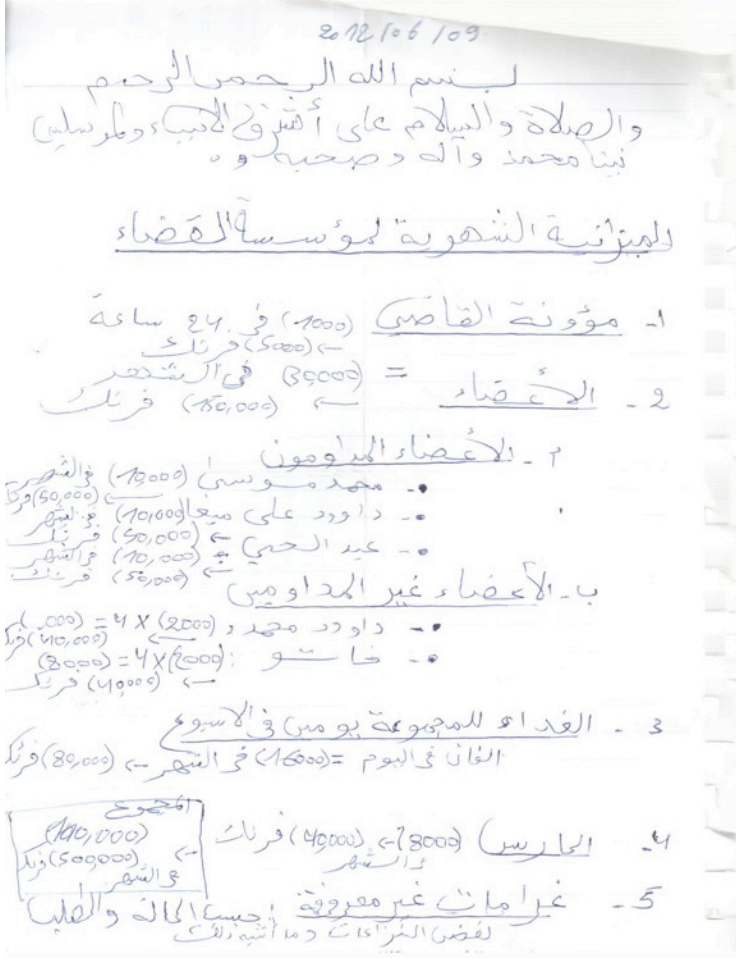 2012/06/09
بسم الله الرحمن الرحيم
والصلاة والسلام على أشرف الأنبياء والمرسلين
نبينا محمد وآله وصحبه و
الميزانية الشهرية لمؤسسة القضاء
1- مؤونة القاضي (1000) في 24 ساعة
← (5000) فرنك
= (30,000) في الشهر
2- الأعضاء
← (150,000) فرنك
أ- الأعضاء المداومون
•- محمد موسى (10,000) في الشهر
← (50,000) فرنك
•- داوود علي ميغا (10,000) في الشهر
← (50,000) فرنك
•- عبد الحي = (10,000) في الشهر
← (50,000) فرنك
ب- الأعضاء غير المداومين
•- داوود محمد: (2000) 4X =
← (40,000) فرنك
•- خاشو: (2000) 4X = (8000)
← (40,000) فرنك
3- الغداء للمجموعة يومين في الاسبوع
الفان في اليوم = (16000) في الشهر ← (80,000) فرنك
4- الحارس (8000) ← (40,000) فرنك
في الشهر
المجموع
(100,000)
← (500,000) فرنك
في الشهر
5- غرامات غير معروفة: حسب الحالة والطلب
لفض النزاعات وما أشبه ذلك